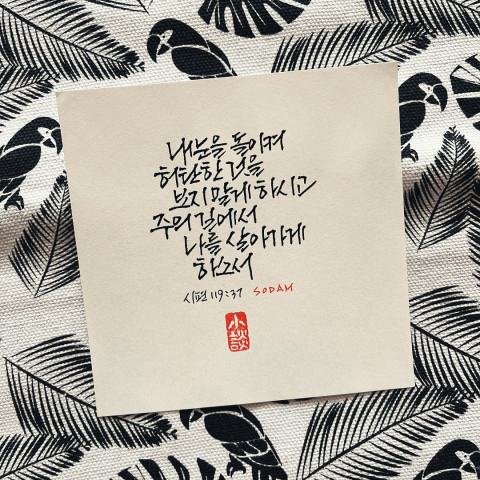 내 눈을 돌이켜
허탄한 것을
보지 말게 하시고
주의 길에서
나를 살아가게
하소서
시편 119:37 SODAM
小談